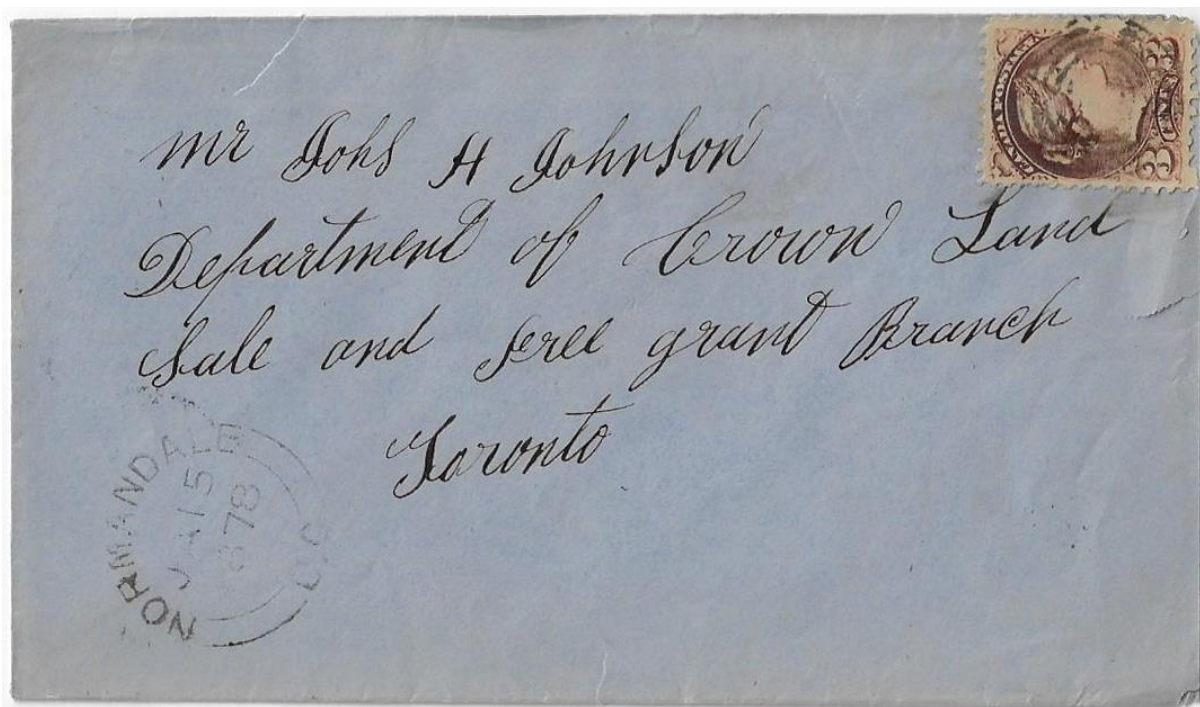 CANADA POSTAGE
3 CENTS 3
Mr Johs H Johnson
Department of Crown Land
Sale and free grant Branch
Toronto
NORMANDALE
JA 15
1878